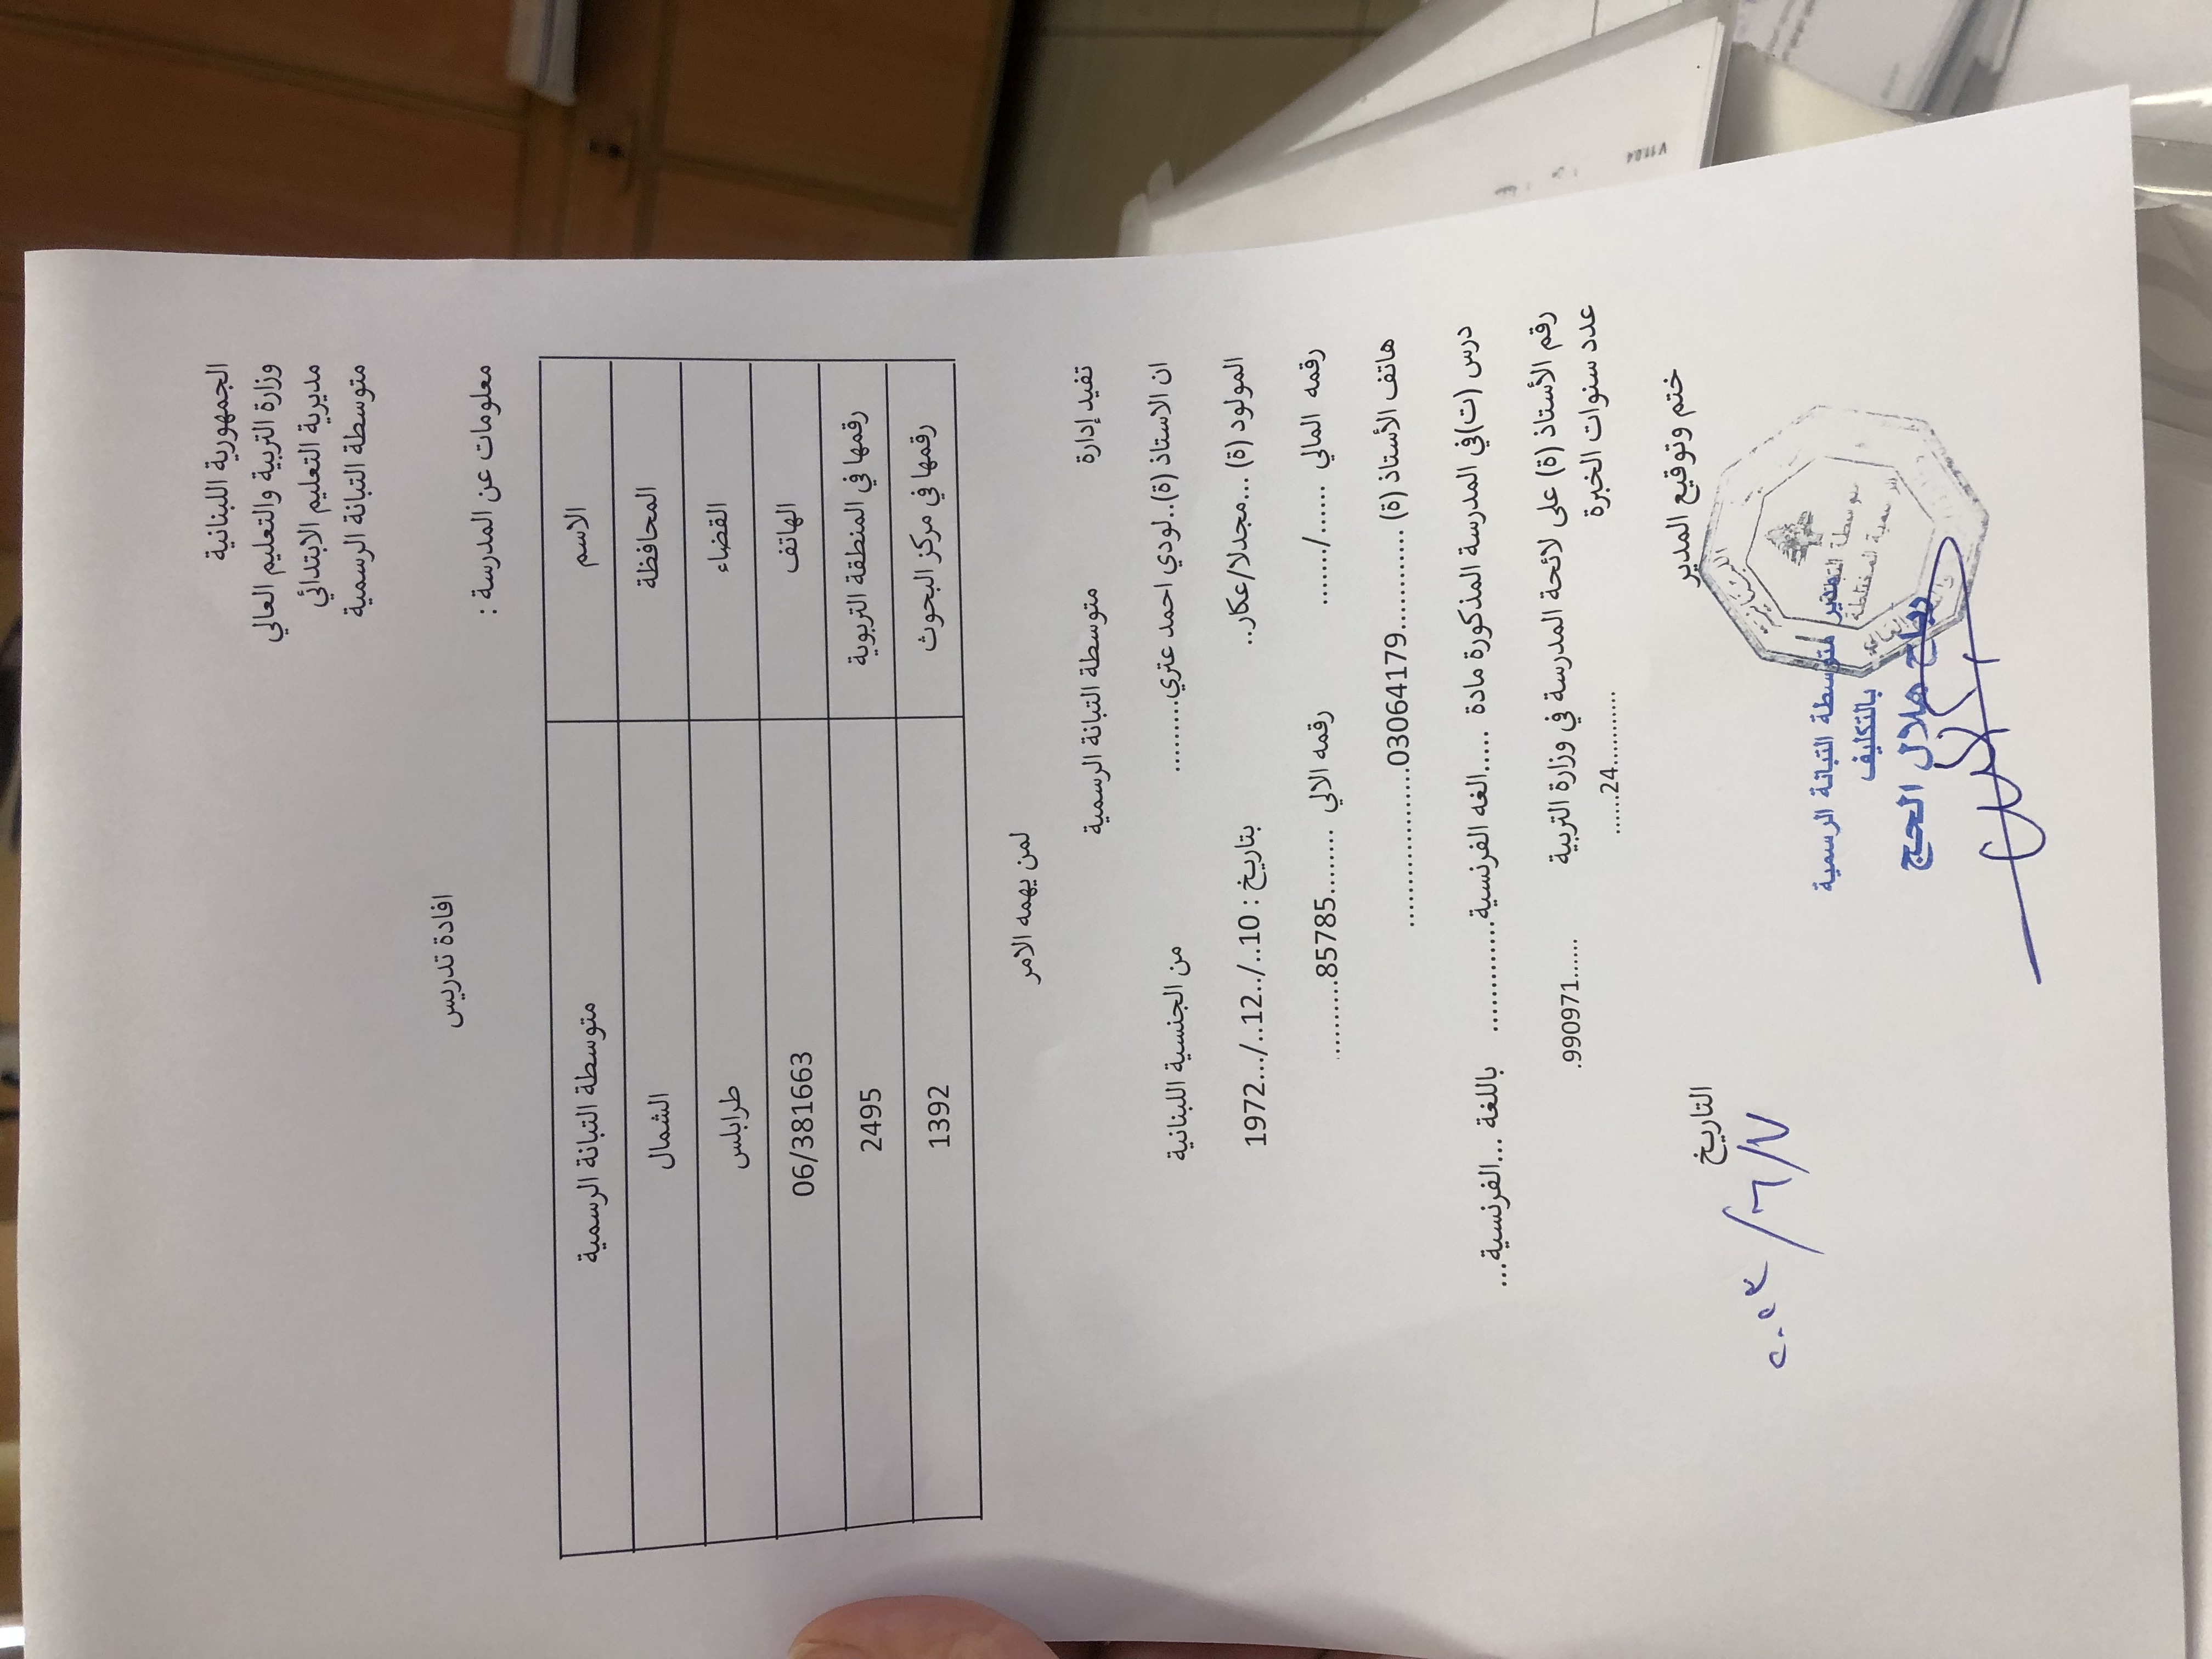 الجمهورية اللبنانية
وزارة التربية والتعليم العالي
مديرية التعليم الابتدائي
متوسطة التبانة الرسمية
افادة تدريس
معلومات عن المدرسة :
الاسم متوسطة التبانة الرسمية
المحافظة الشمال
القضاء طرابلس
الهاتف 06/381663
رقمها في المنطقة التربوية 2495
رقمها في مركز البحوث 1392
لمن يهمه الامر
تفيد إدارة متوسطة التبانة الرسمية
ان الاستاذ (ة)..لودي احمد عتري.......... من الجنسية اللبنانية
المولود (ة) ...مجدلا/عكار.. بتاريخ : 10../..12../...1972
رقمه المالي ....../....... رقمه الالي .........85785..........
هاتف الأستاذ (ة) ............03064179..................
درس (ت)في المدرسة المذكورة مادة ......الغه الفرنسية............. باللغة ....الفرنسية...
رقم الأستاذ (ة) على لائحة المدرسة في وزارة التربية ......990971.
عدد سنوات الخبرة ...........24......
ختم وتوقيع المدير التاريخ
٧/٦/٢٠٢٤
مدير متوسطة التبانة الرسمية
بالتكليف
رباح هلال الحج